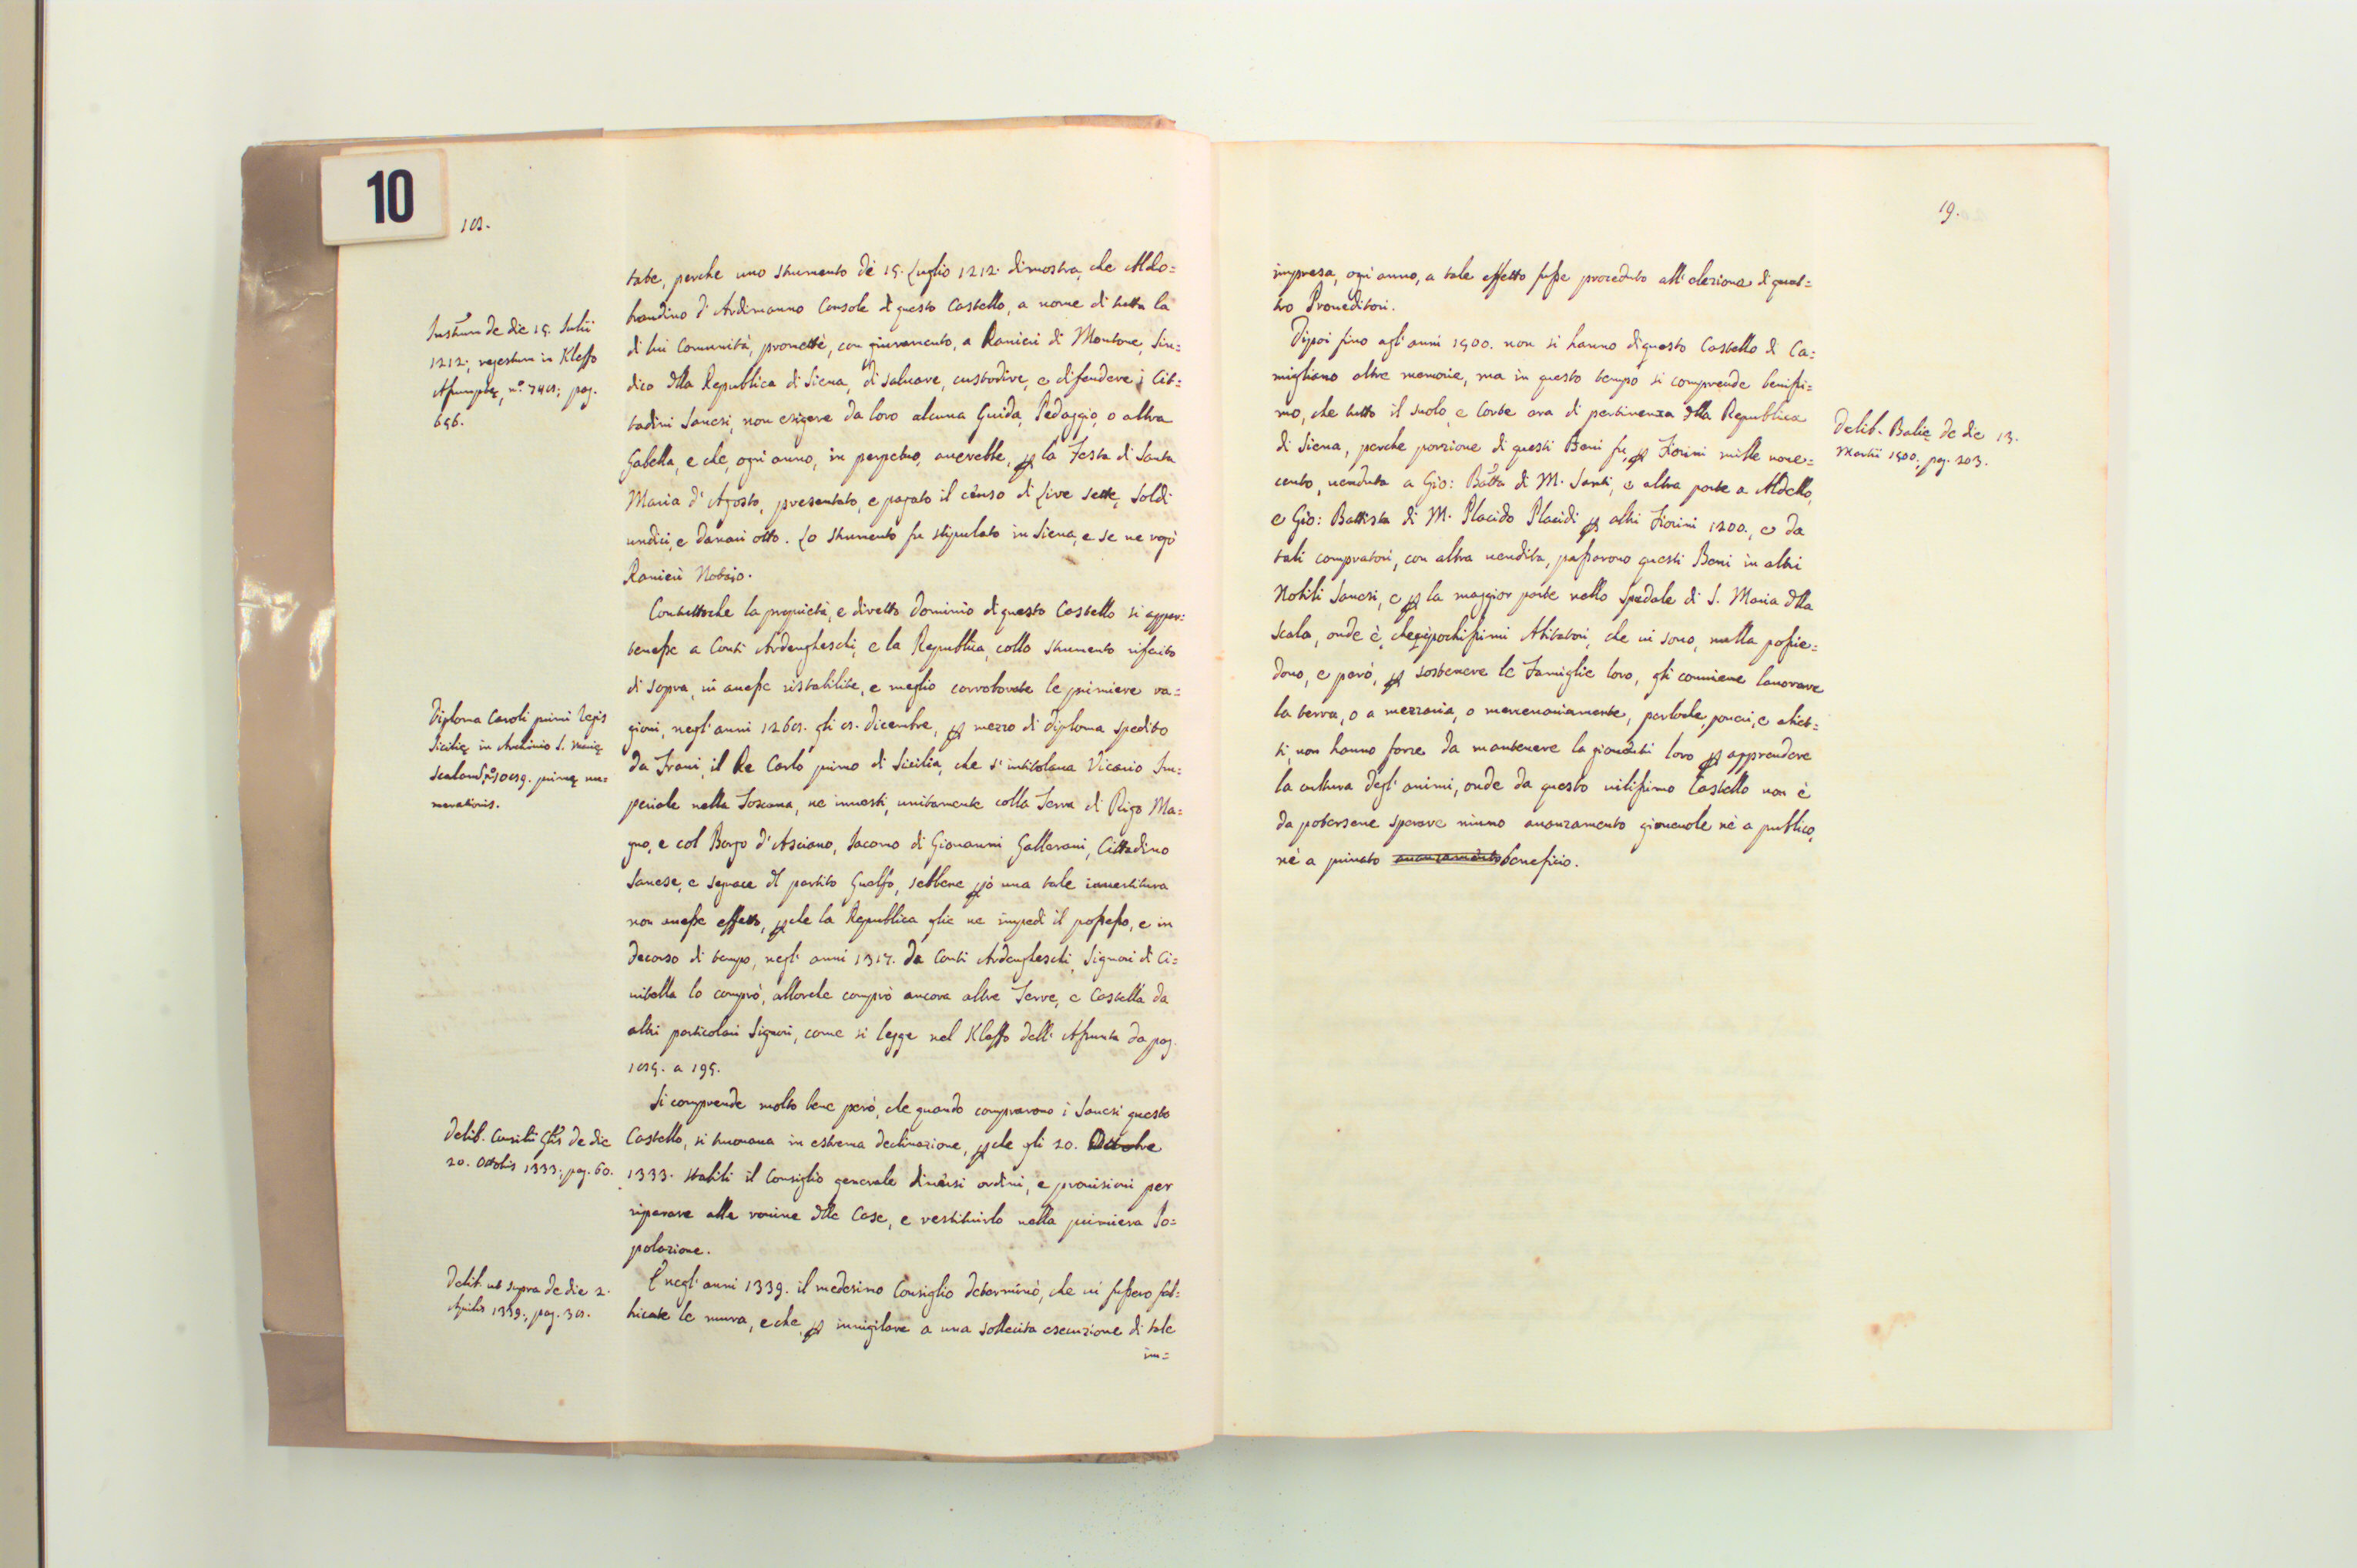 10
18.
tate, perche uno strumento de 15. Luglio 1212. dimostra, che Aldo=
brandino d'Ardimanno Console di questo Castello, a nome di tutta la
di lui Comunità, promette, con giuramento, a Ranieri di Montone, Sin=
dico dlla Republica di Siena, di saluare, custodire, e difendere i Cit=
tadini Sanesi, non esigere da loro alcuna Guida, Pedaggio, o altra
Gabella, e che, ogni anno, in perpetuo, auerebbe, p la Festa di Santa
Maria d'Agosto, presentato, e pagato il censo di Lire sette, soldi
undici, e danari otto. Lo strumento fu stipulato in Siena, e se ne rogò
Ranieri Notaio.
Instrum de die 15. Julii
1212; registum in Kleffo
Assumptę, n.º 748; pag.
656.
Contuttoche la proprietà, e diretto dominio di questo Castello si appar=
tenesse a Conti Ardengheschi, e la Republica, collo strumento riferito
di sopra, ui auesse ristabilite, e meglio corroborate le primiere ra=
gioni, negl'anni 1268. gli 8. dicembre, p mezzo di diploma spedito
da Trani, il Re Carlo primo di Sicilia, che s'intitolaua Vicario Im=
periale nella Toscana, ne inuestì, unitamente colla Terra di Rigo Ma=
gno, e col Borgo d'Asciano, Iacomo di Giouanni Gallerani, Cittadino
Sanese, e seguace dl partito Guelfo, sebbene pò una tale inuestitura
non auesse effetto, pche la Republica glie ne impedì il possesso, e in
decorso di tempo, negl'anni 1317. da Conti Ardengheschi, Signori di Ci=
uitella lo comprò, allorche comprò ancora altre Terre, e Castella da
altri particolari Signori, come si legge nel Kleffo dell'Assunta da pag.
185. a 195.
Diploma Caroli primi Regis
Sicilię in Archiuio S. Marię
Scalarum, nº 1089. primę nu=
merationis.
Si comprende molto bene però, che quando comprarono i Sanesi questo
Castello, si truouaua in estrema declinazione, pche gli 20. Ottobre
1333. stabilì il Consiglio generale diuersi ordini, e prouisioni per
riparare alle rouine dlle Case, e restituirlo nella primiera Po=
polazione.
Delib. Consilii Glis de die
20. Octobris 1333; pag. 60.
E negl'anni 1339. il medesimo Consiglio determinò, che ui fussero fab=
bricate le mura, e che, p inuigilare a una sollecita esecuzione di tale
im=
Delib. ut supra de die 2.
Aprilis 1339; pag. 38.
19.
impresa, ogni anno, a tale effetto fusse proceduto all'elezione di quat=
tro Proueditori.
Dipoi fino agl'anni 1500. non si hanno di questo Castello di Ca=
migliano altre memorie, ma in questo tempo si comprende benissi=
mo, che tutto il suolo, e Corte era di pertinenza dlla Republica
di Siena, perche porzione di questi Beni fu, p Fiorini mille noue=
cento, uenduta a Gio: Batta di M. Santi, e altra parte a Aldello,
e Gio: Battista di M. Placido Placidi p altri Fiorini 1200., e da
tali compratori, con altra uendita, passarono questi Beni in altri
Nobili Sanesi, e p la maggior parte nello Spedale di S. Maria dlla
Scala, onde è, che i pochissimi Abitatori, che ui sono, nulla possie=
dono, e però, p sostenere le Famiglie loro, gli conuiene lauorare
la terra, o a mezzaria, o mercenariamente, partoche, poueri, e abiet=
ti, non hanno forze da mantenere la giouentù loro p apprendere
la cultura degl'animi, onde da questo uilissimo Castello non è
da potersene sperare niuno auanzamento gioueuole nè a publico,
nè a priuato auanzamento beneficio.
Delib. Balię de die 13.
Martii 1500; pag. 203.